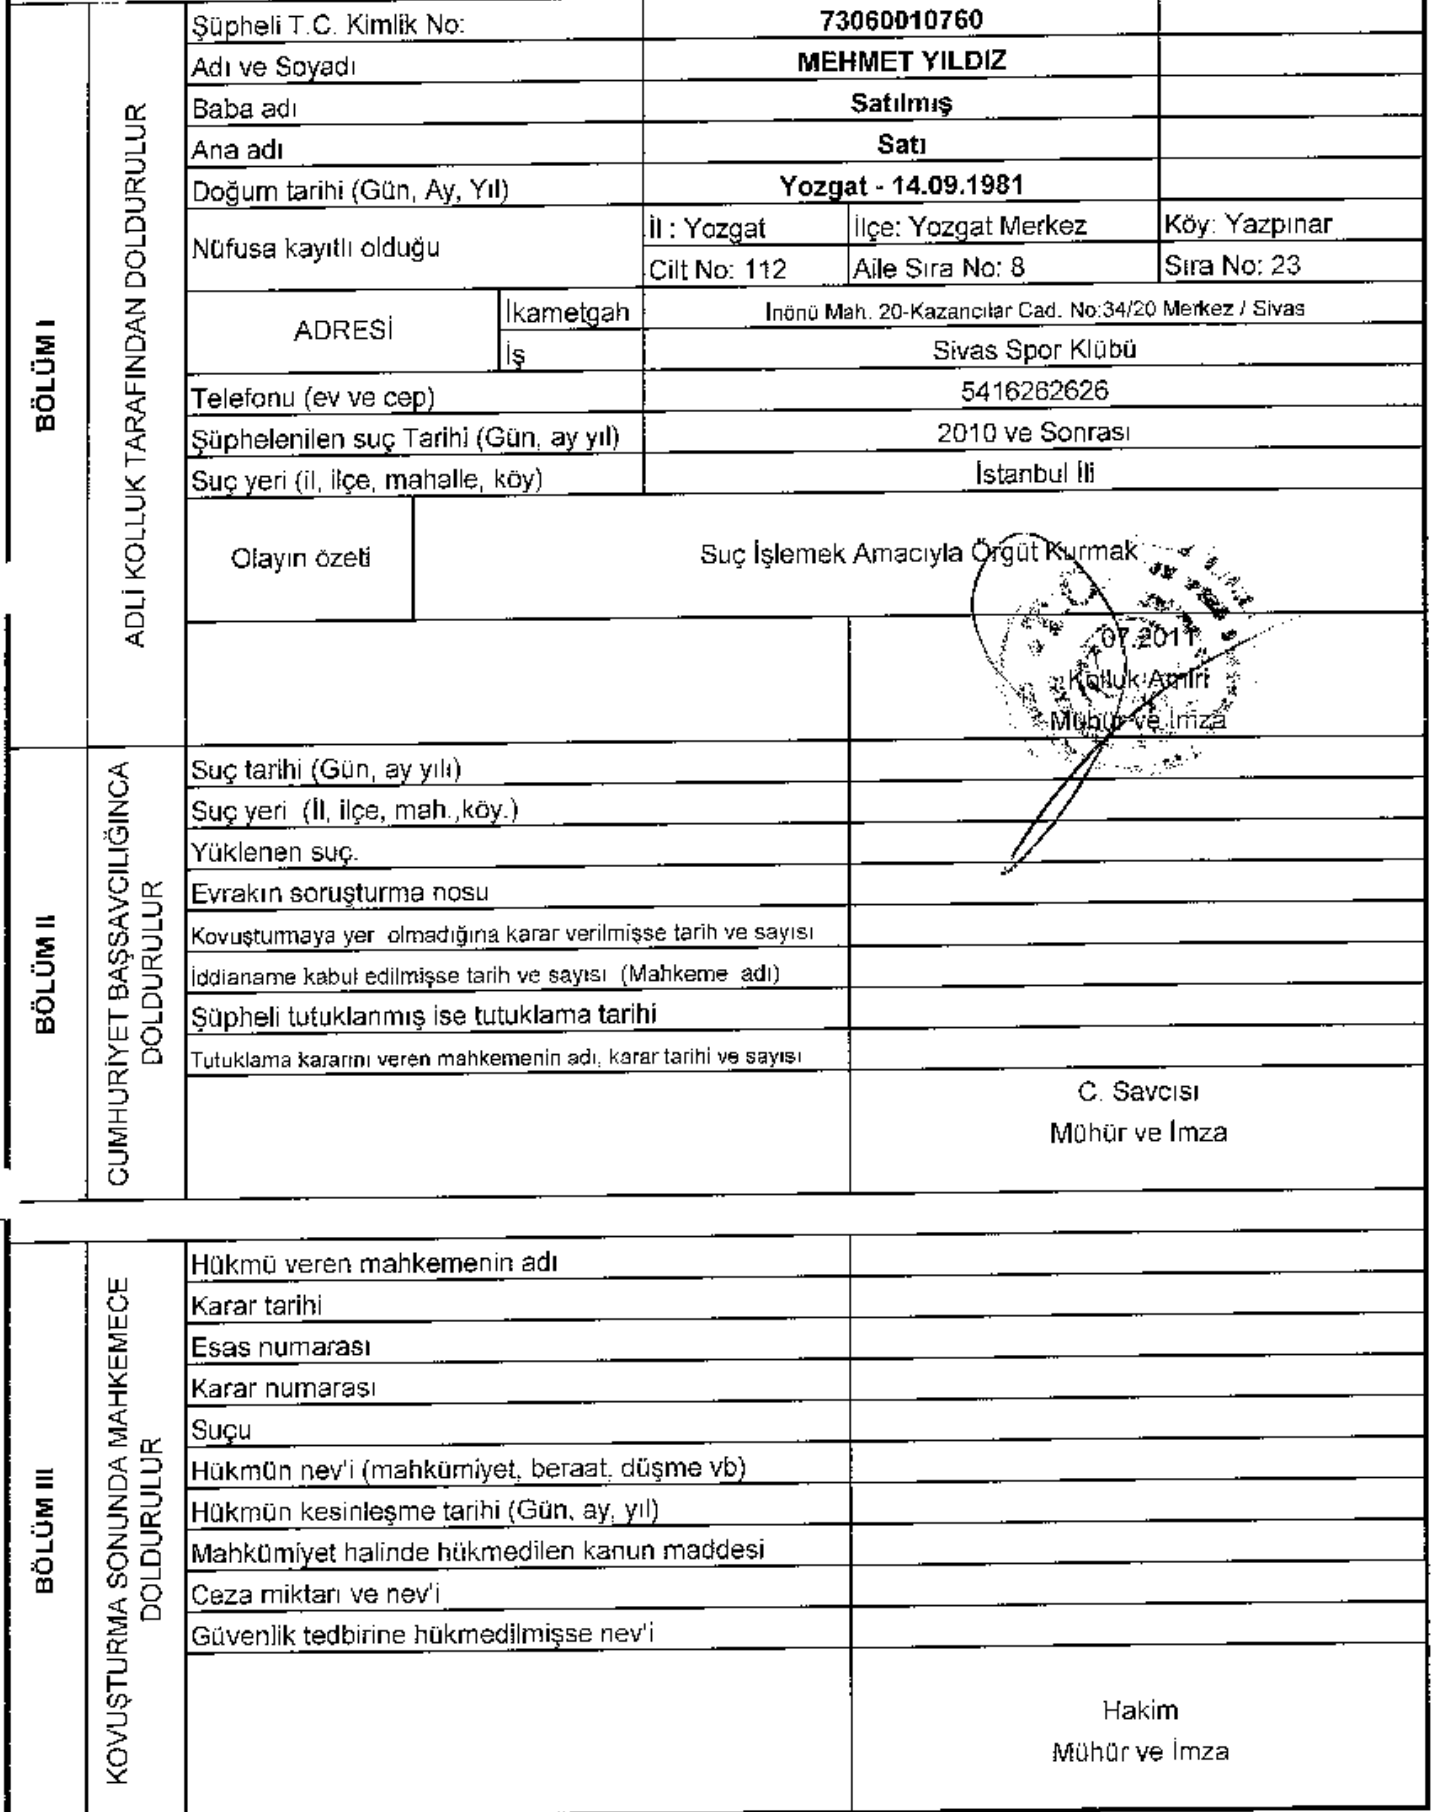 BÖLÜM I
ADLİ KOLLUK TARAFINDAN DOLDURULUR
Şüpheli T.C. Kimlik No: 73060010760
Adı ve Soyadı MEHMET YILDIZ
Baba adı Satılmış
Ana adı Satı
Doğum tarihi (Gün, Ay, Yıl) Yozgat - 14.09.1981
Nüfusa kayıtlı olduğu
İl : Yozgat İlçe: Yozgat Merkez Köy: Yazpınar
Cilt No: 112 Aile Sıra No: 8 Sıra No: 23
ADRESİ
İkametgah İnönü Mah. 20-Kazancılar Cad. No:34/20 Merkez / Sivas
İş Sivas Spor Klübü
Telefonu (ev ve cep) 5416262626
Şüphelenilen suç Tarihi (Gün, ay yıl) 2010 ve Sonrası
Suç yeri (il, ilçe, mahalle, köy) İstanbul İli
Olayın özeti Suç İşlemek Amacıyla Örgüt Kurmak
07.2011
Kolluk Amiri
Mühür ve İmza
BÖLÜM II
CUMHURİYET BAŞSAVCILIĞINCA
DOLDURULUR
Suç tarihi (Gün, ay yılı)
Suç yeri (İl, ilçe, mah.,köy.)
Yüklenen suç.
Evrakın soruşturma nosu
Kovuşturmaya yer olmadığına karar verilmişse tarih ve sayısı
İddianame kabul edilmişse tarih ve sayısı (Mahkeme adı)
Şüpheli tutuklanmış ise tutuklama tarihi
Tutuklama kararını veren mahkemenin adı, karar tarihi ve sayısı
C. Savcısı
Mühür ve İmza
BÖLÜM III
KOVUŞTURMA SONUNDA MAHKEMECE
DOLDURULUR
Hükmü veren mahkemenin adı
Karar tarihi
Esas numarası
Karar numarası
Suçu
Hükmün nev'i (mahkümiyet, beraat, düşme vb)
Hükmün kesinleşme tarihi (Gün, ay, yıl)
Mahkümiyet halinde hükmedilen kanun maddesi
Ceza miktarı ve nev'i
Güvenlik tedbirine hükmedilmişse nev'i
Hakim
Mühür ve İmza